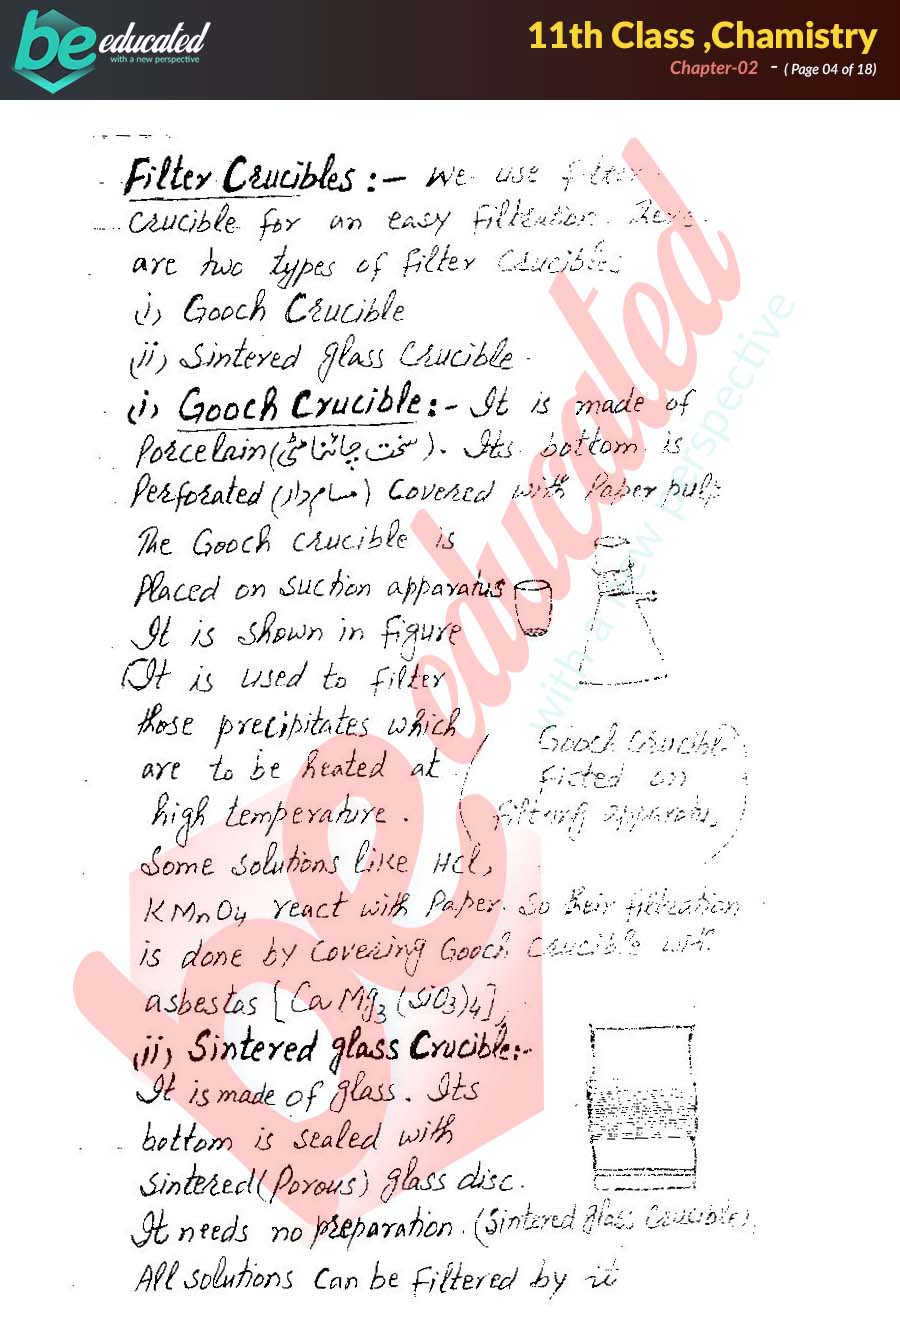 be educated
with a new perspective
11th Class ,Chamistry
Chapter-02 - ( Page 04 of 18)
Filter Crucibles :- We use filter
crucible for an easy filtration. There
are two types of filter crucibles
(i) Gooch Crucible
(ii) Sintered glass Crucible.
(i) Gooch Crucible:- It is made of
Porcelain (سخت چائنا مٹی). Its bottom is
Perforated (مسام دار) Covered with Paper pulp
The Gooch crucible is
Placed on suction apparatus
It is shown in figure
It is used to filter
those precipitates which
are to be heated at
high temperature.
(Gooch Crucible
Fitted on
filtring apparatus)
Some solutions like HCl,
KMnO4 react with Paper. So their filtration
is done by Covering Gooch Crucible with
asbestos [CaMg3(SiO3)4],
(ii) Sintered glass Crucible:-
It is made of glass. Its
bottom is sealed with
sintered (Porous) glass disc.
It needs no preparation. (Sintered glass Crucible).
All solutions Can be Filtered by it
be educated
with a new perspective